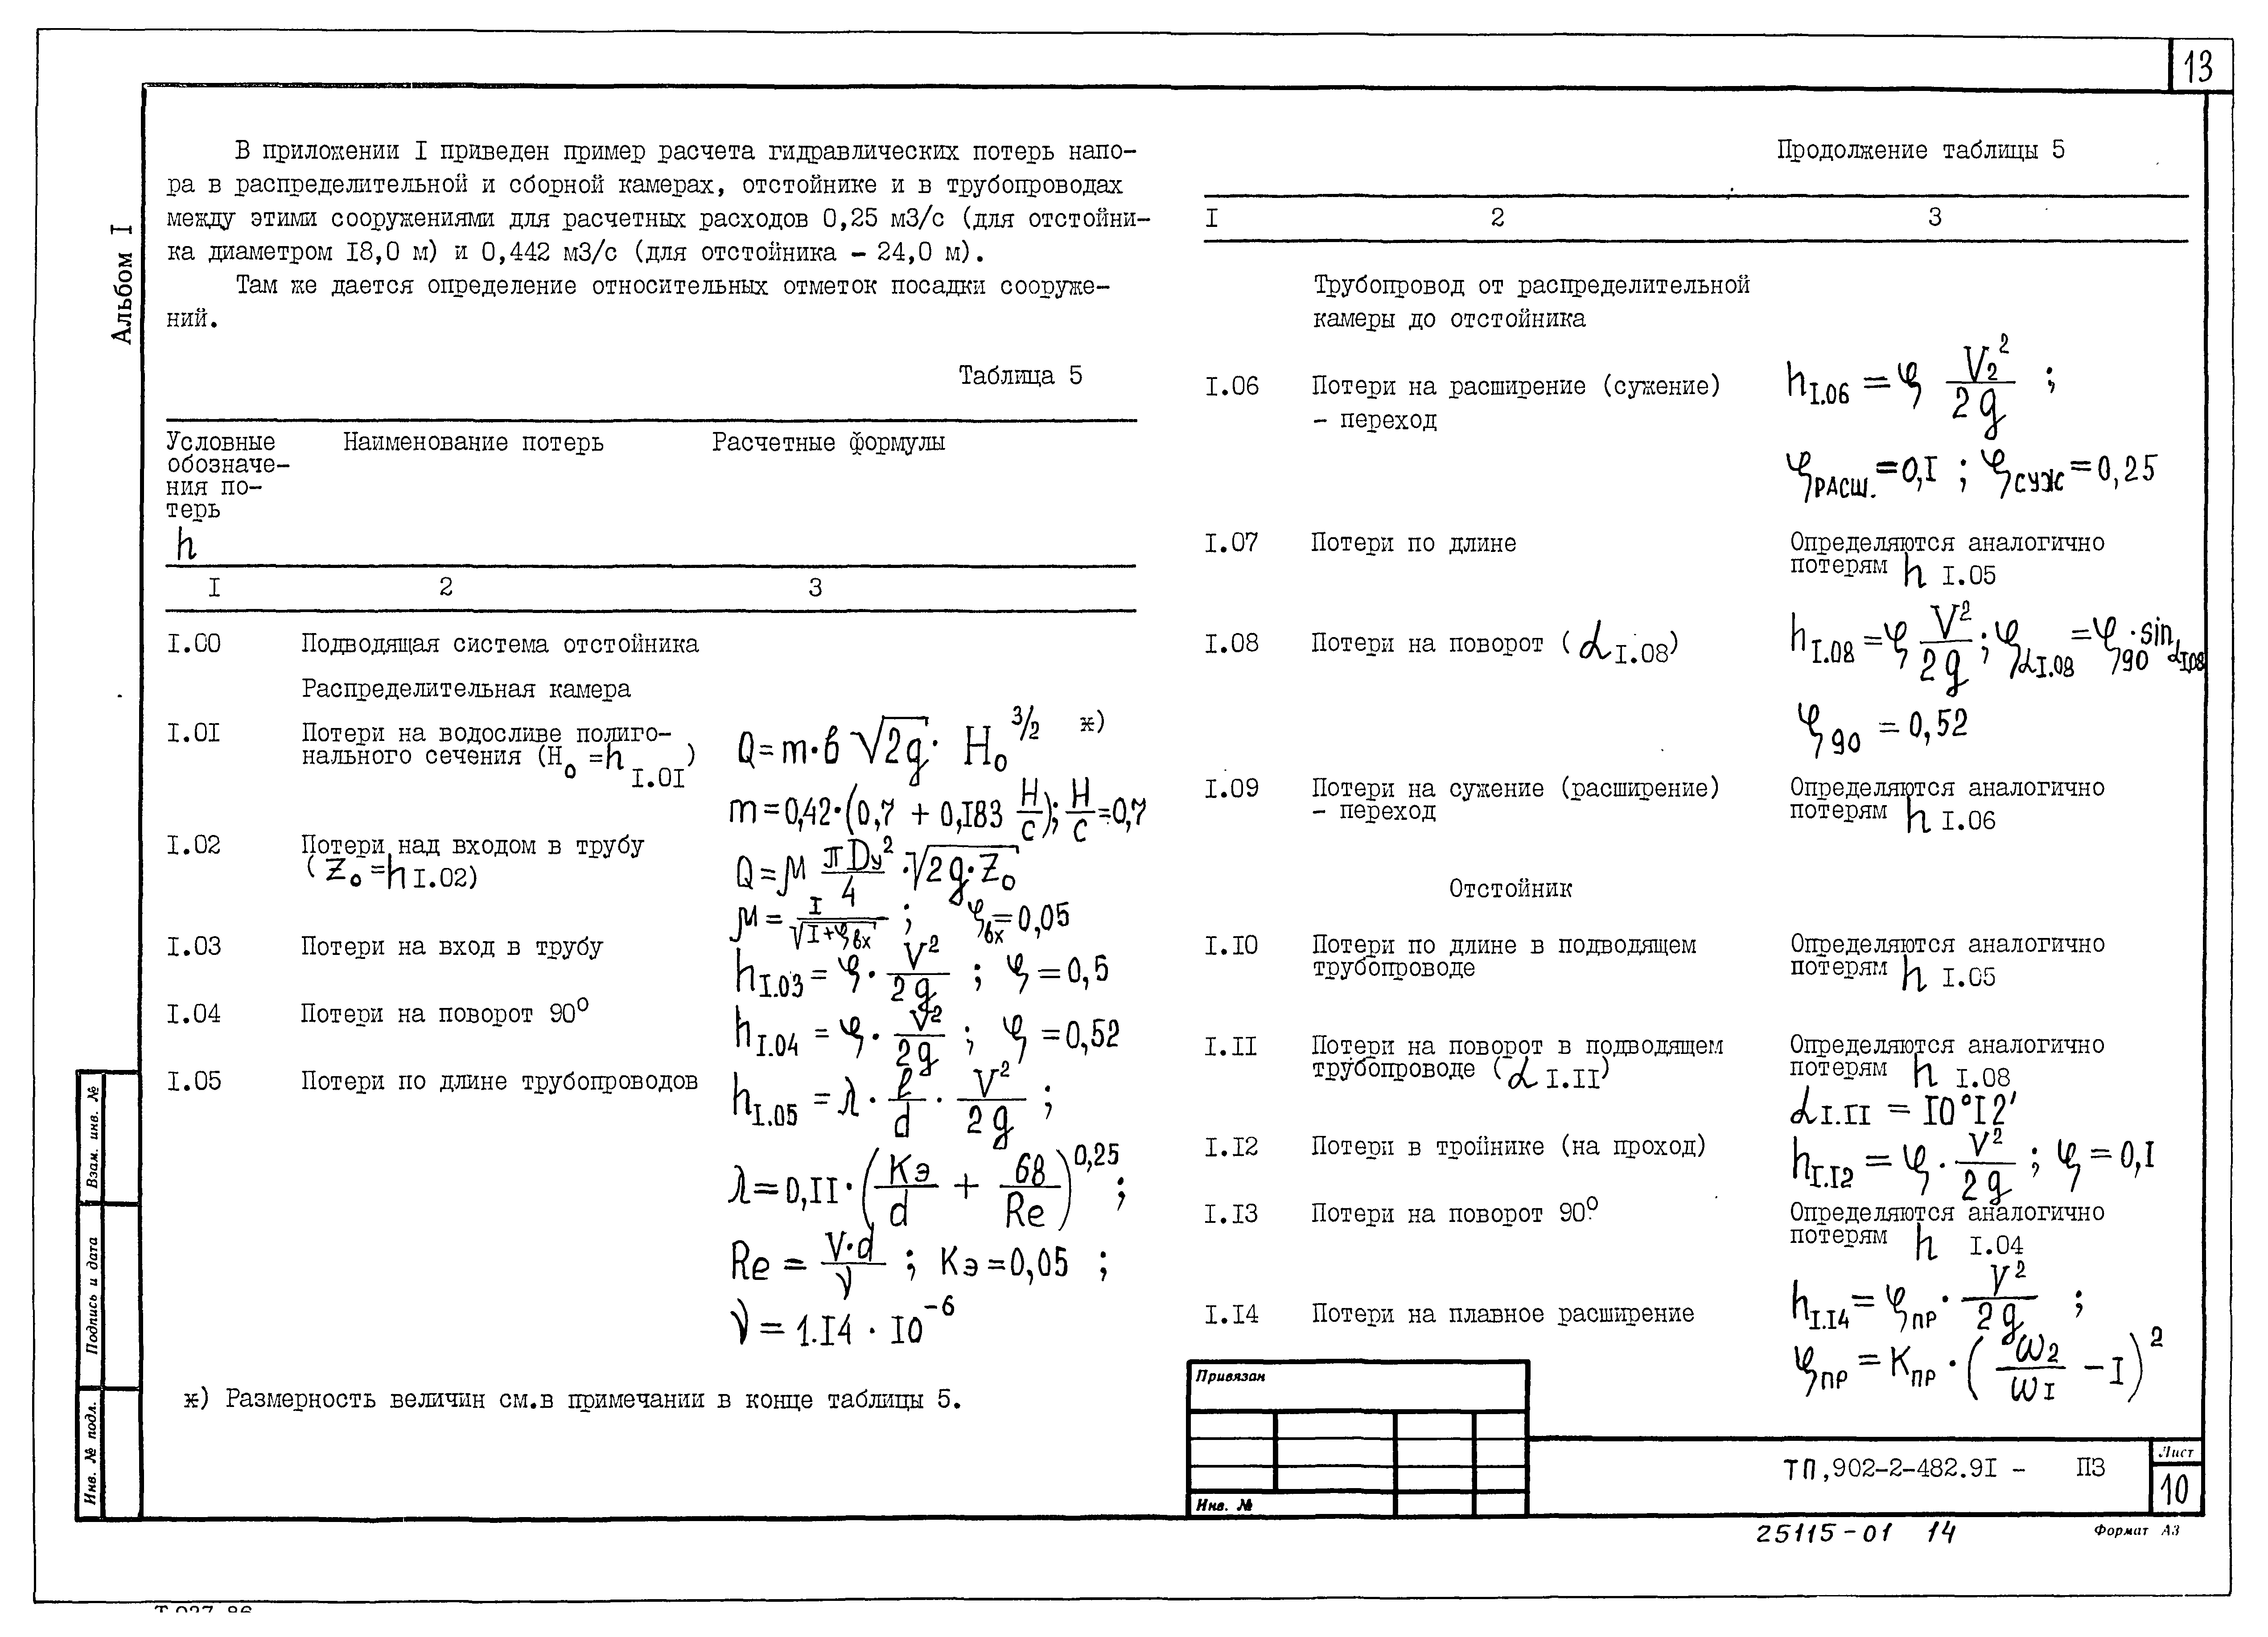 13
Альбом I
В приложении I приведен пример расчета гидравлических потерь напо-
ра в распределительной и сборной камерах, отстойнике и в трубопроводах
между этими сооружениями для расчетных расходов 0,25 м3/с (для отстойни-
ка диаметром 18,0 м) и 0,442 м3/с (для отстойника - 24,0 м).
Там же дается определение относительных отметок посадки сооруже-
ний.
Таблица 5
Условные обозначе- ния по- терь h
Наименование потерь
Расчетные формулы
I 2 3
I.00 Подводящая система отстойника
Распределительная камера
I.01 Потери на водосливе полиго-
нального сечения (H₀ = h I.01)
Q = m·в √2g · H₀^3/2 ж)
m = 0,42·(0,7 + 0,183 H/c); H/c = 0,7
I.02 Потери над входом в трубу
(Z₀ = h I.02)
Q = μ πDу²/4 · √2g·Z₀
μ = I/√(I+φвх) ; φвх = 0,05
I.03 Потери на вход в трубу
h I.03 = φ · V²/2g ; φ = 0,5
I.04 Потери на поворот 90°
h I.04 = φ · V²/2g ; φ = 0,52
I.05 Потери по длине трубопроводов
h I.05 = λ · ℓ/d · V²/2g ;
λ = 0,II · (Kэ/d + 68/Re)^0,25 ;
Re = V·d/ν ; Kэ = 0,05 ;
ν = 1.14 · 10^-6
ж) Размерность величин см.в примечании в конце таблицы 5.
Продолжение таблицы 5
I 2 3
Трубопровод от распределительной
камеры до отстойника
I.06 Потери на расширение (сужение)
- переход
h I.06 = φ V₂²/2g ;
φ РАСШ. = 0,I ; φ СУЖ = 0,25
I.07 Потери по длине
Определяются аналогично
потерям h I.05
I.08 Потери на поворот (α I.08)
h I.08 = φ V²/2g ; φ α I.08 = φ 90 · sin α I.08
φ 90 = 0,52
I.09 Потери на сужение (расширение)
- переход
Определяются аналогично
потерям h I.06
Отстойник
I.10 Потери по длине в подводящем
трубопроводе
Определяются аналогично
потерям h I.05
I.II Потери на поворот в подводящем
трубопроводе (α I.II)
Определяются аналогично
потерям h I.08
α I.II = 10°12'
I.12 Потери в тройнике (на проход)
h I.12 = φ · V²/2g ; φ = 0,I
I.13 Потери на поворот 90°
Определяются аналогично
потерям h I.04
I.14 Потери на плавное расширение
h I.14 = φ ПР · V²/2g ;
φ ПР = K ПР · (ω2/ωI - I)²
Взам. инв. №
Подпись и дата
Инв. № подл.
Привязан
Инв. №
ТП,902-2-482.91 - ПЗ
Лист
10
25115-01 14
Формат А3